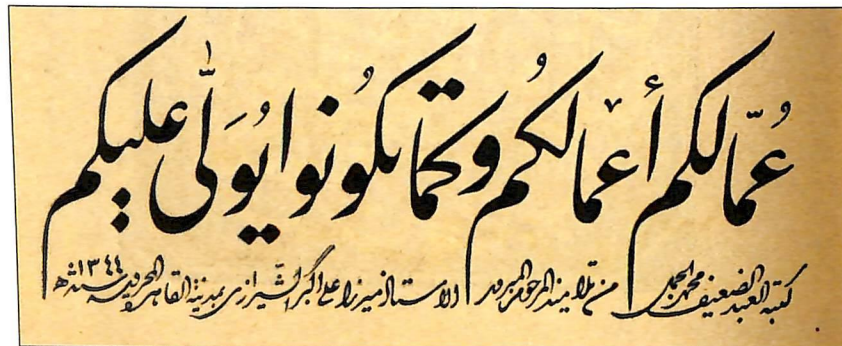 عُمّالُكم أعمالُكُم وكما تكُونُوا يُوَلّى عليكم
كتبه العبد الضعيف محمد الجمل من تلاميذ المرحوم المبرور الاستاذ ميرزا علي اكبر الشّيرازي بمدينة القاهرة المحروسة سنة ١٣٤٤ه